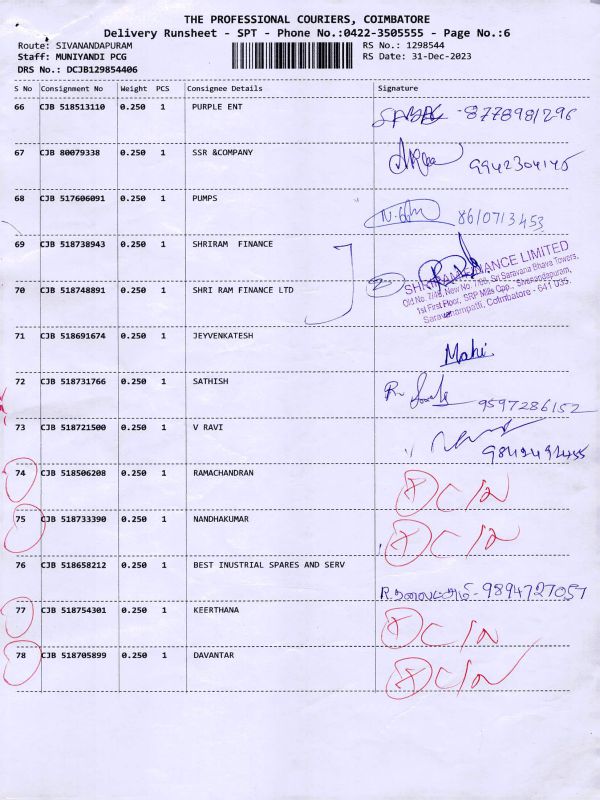 THE PROFESSIONAL COURIERS, COIMBATORE
Delivery Runsheet - SPT - Phone No.:0422-3505555 - Page No.:6
Route: SIVANANDAPURAM RS No.: 1298544
Staff: MUNIYANDI PCG RS Date: 31-Dec-2023
DRS No.: DCJB129854406
S No Consignment No Weight PCS Consignee Details Signature
66 CJB 518513110 0.250 1 PURPLE ENT 8778981296
67 CJB 80079338 0.250 1 SSR &COMPANY 9942304145
68 CJB 517606091 0.250 1 PUMPS 8610713453
69 CJB 518738943 0.250 1 SHRIRAM FINANCE
SHRIRAM FINANCE LIMITED
Old No. 7/4B, New No. 7/6B, Sri Saravana Bhava Towers,
1st First Floor, SRP Mills Opp - Sivanandapuram,
Saravanampatti, Coimbatore - 641 035.
70 CJB 518748891 0.250 1 SHRI RAM FINANCE LTD
71 CJB 518691674 0.250 1 JEYVENKATESH Mahi
72 CJB 518731766 0.250 1 SATHISH 9597286152
73 CJB 518721500 0.250 1 V RAVI 9842492455
74 CJB 518506208 0.250 1 RAMACHANDRAN C/N
75 CJB 518733390 0.250 1 NANDHAKUMAR C/N
76 CJB 518658212 0.250 1 BEST INUSTRIAL SPARES AND SERV 9894727057
77 CJB 518754301 0.250 1 KEERTHANA C/N
78 CJB 518705899 0.250 1 DAVANTAR C/N